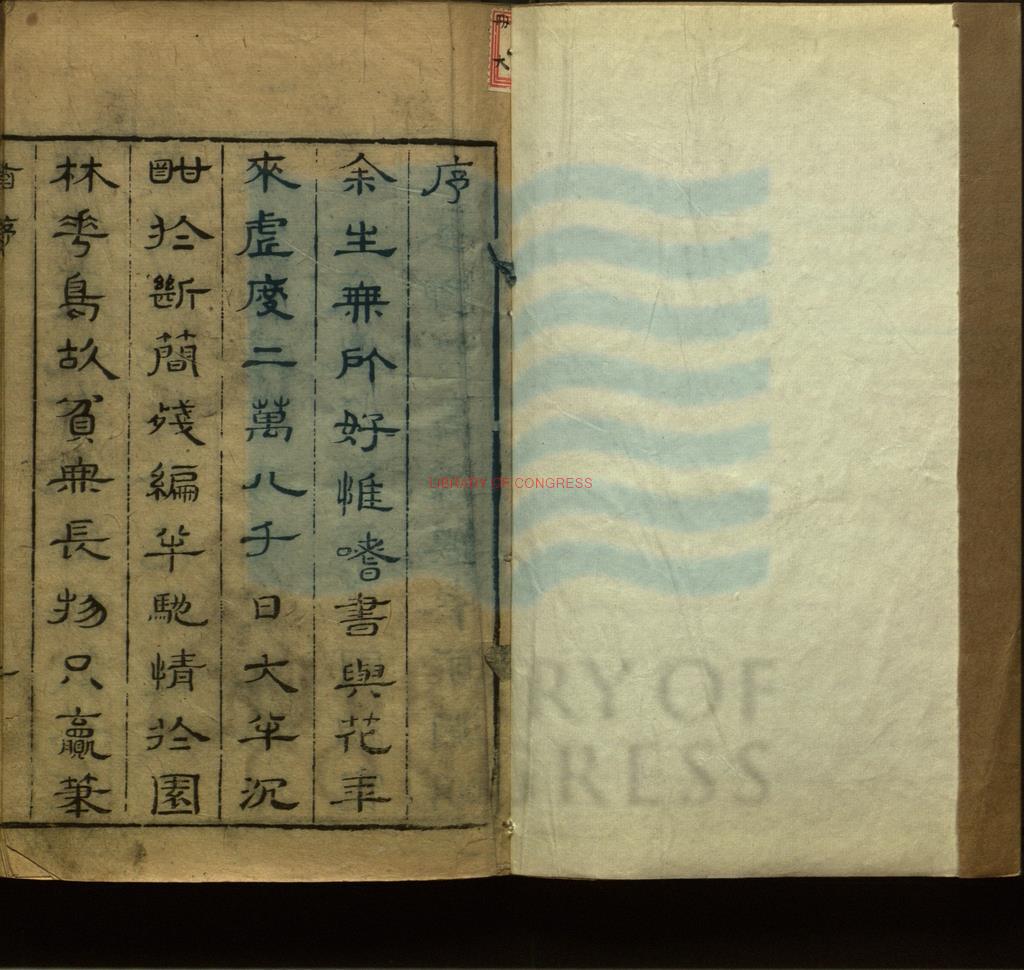 序
余生無所好惟嗜書與花年
來虛度二萬八千日大半沉
酣於斷簡殘編半馳情於園
林花鳥故貧無長物只贏筆
序
一
冊
大
LIBRARY OF CONGRESS
RY OF
GRESS